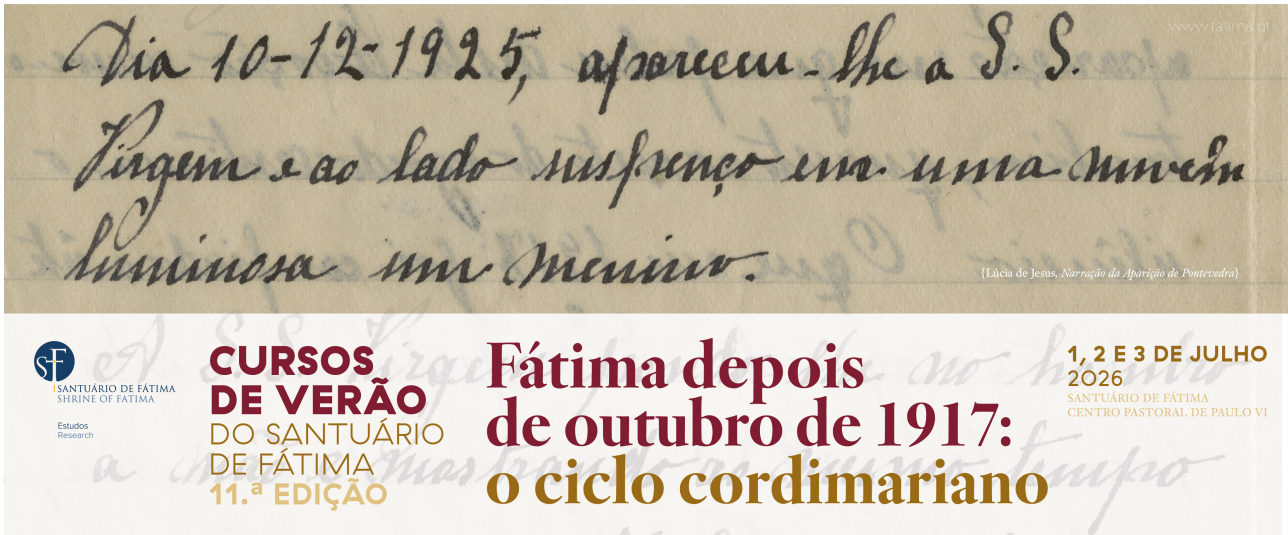 www.fatima.pt
Dia 10-12-1925, apareceu-lhe a S. S.
Virgem e ao lado suspenço em uma nuvem
luminosa um menino.
{Lúcia de Jesus, Narração da Aparição de Pontevedra}
SF
SANTUÁRIO DE FÁTIMA
SHRINE OF FATIMA
Estudos
Research
CURSOS
DE VERÃO
DO SANTUÁRIO
DE FÁTIMA
11.ª EDIÇÃO
Fátima depois
de outubro de 1917:
o ciclo cordimariano
1, 2 E 3 DE JULHO
2026
SANTUÁRIO DE FÁTIMA
CENTRO PASTORAL DE PAULO VI
A S. S. Virgem no hombro
a mão e mostrando ao mesmo tempo